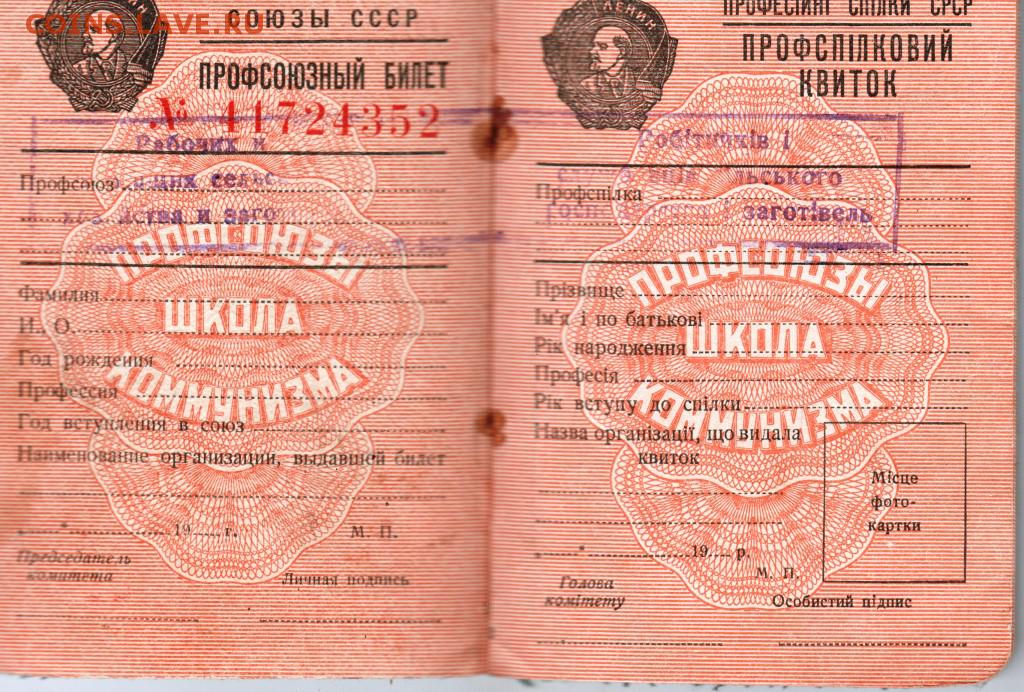 COINS.LAVE.RU
СОЮЗЫ СССР
ПРОФСОЮЗНЫЙ БИЛЕТ
№ 41724352
Рабочих и
Профсоюз
щих сельс
и заго
ПРОФСОЮЗЫ
ШКОЛА
КОММУНИЗМА
Фамилия
И. О.
Год рождения
Профессия
Год вступления в союз
Наименование организации, выдавшей билет
„ “ 19 г.
М. П.
Председатель
комитета
Личная подпись
ЛЕНИН
ПРОФЕСІЙНІ СПІЛКИ СРСР
ПРОФСПІЛКОВИЙ
КВИТОК
Робітників і
Профспілка
ського
заготівель
ПРОФСОЮЗЫ
ШКОЛА
КОММУНИЗМА
Прізвище
Ім'я і по батькові
Рік народження
Професія
Рік вступу до спілки
Назва організації, що видала
квиток
Місце
фото-
картки
„ “ 19 р.
М. П.
Голова
комітету
Особистий підпис